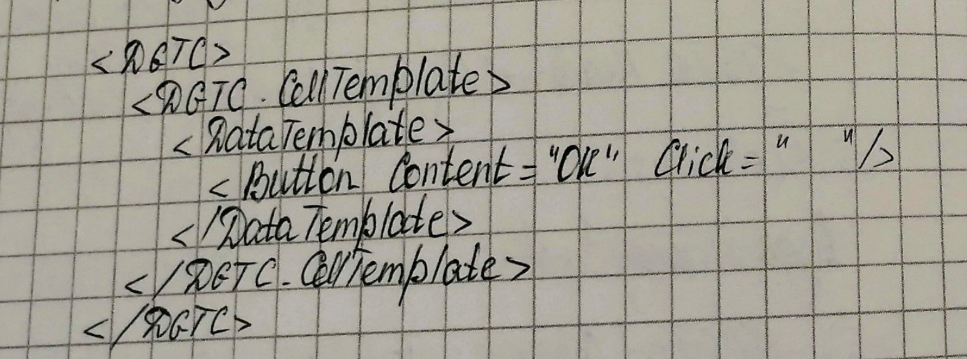 <DGTC>
<DGTC.CellTemplate>
<DataTemplate>
<Button Content="OK" Click=" "/>
</DataTemplate>
</DGTC.CellTemplate>
</DGTC>